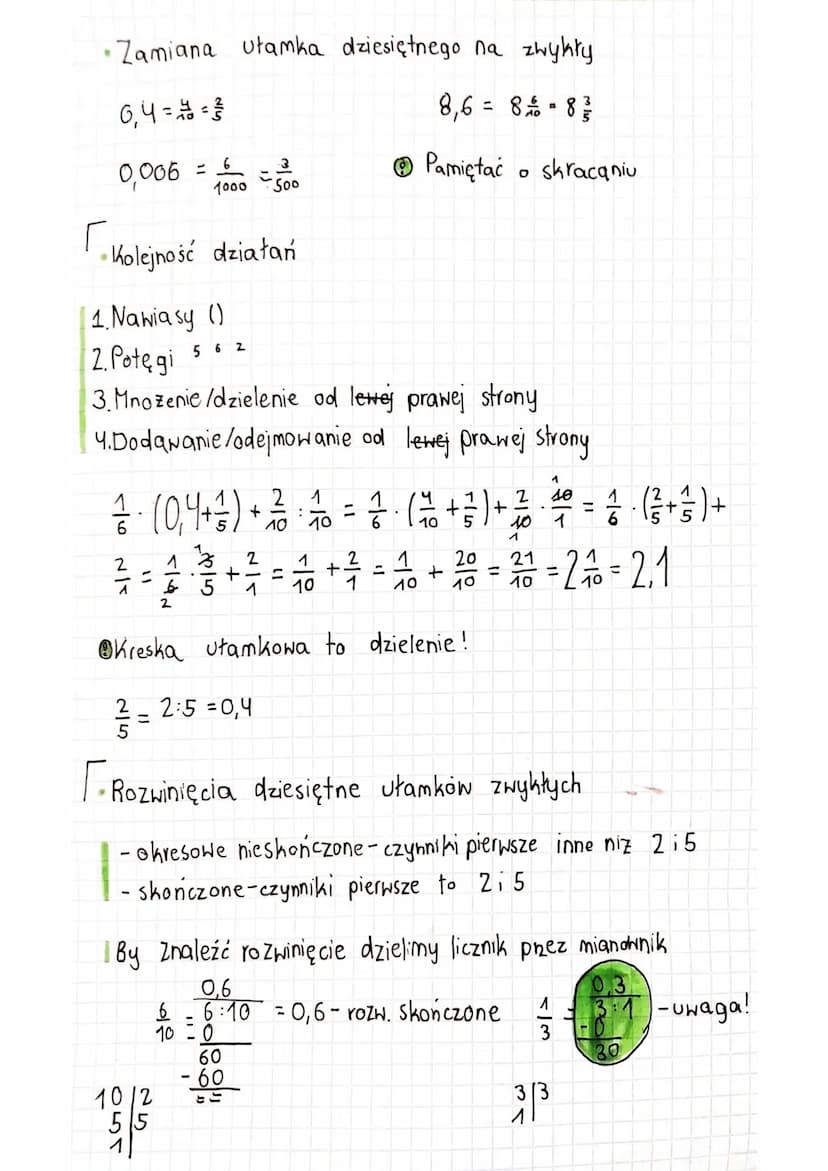 • Zamiana ułamka dziesiętnego na zwykły
0,4 = 4/10 = 2/5    8,6 = 8 6/10 = 8 3/5
0,006 = 6/1000 = 3/500    ! Pamiętać o skracaniu
• Kolejność działań
1. Nawiasy ()
2. Potęgi 5 6 2
3. Mnożenie/dzielenie od lewej prawej strony
4. Dodawanie/odejmowanie od lewej prawej strony
1/6 · (0,4+1/5) + 2/10 : 1/10 = 1/6 · (4/10 + 1/5) + 2/10 · 10/1 = 1/6 · (2/5 + 1/5) +
2/1 = 1/6 · 3/5 + 2/1 = 1/10 + 2/1 = 1/10 + 20/10 = 21/10 = 2 1/10 = 2,1
! Kreska ułamkowa to dzielenie!
2/5 = 2:5 = 0,4
• Rozwinięcia dziesiętne ułamków zwykłych
- okresowe nieskończone - czynniki pierwsze inne niż 2 i 5
- skończone - czynniki pierwsze to 2 i 5
By znaleźć rozwinięcie dzielimy licznik przez mianownik
0,6    0,3
6/10 = 6:10 = 0,6 - rozw. skończone    1/3 = 3:1 - uwaga!
- 0    - 0
60    30
- 60
= =
10|2    3|3
5|5    1|
1|